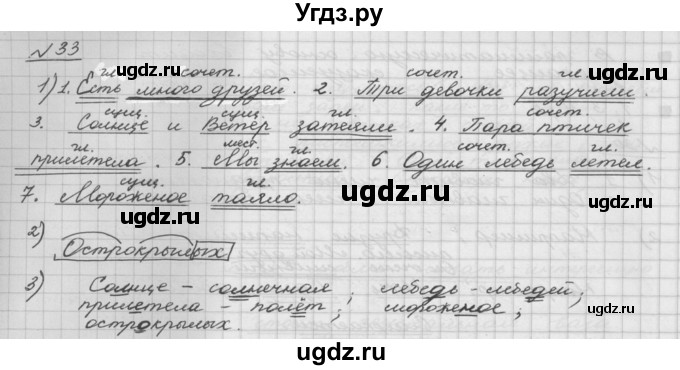 Угдз.ру
№33
гл. сочет. сочет. гл.
1) 1. Есть много друзей. 2. Три девочки разучили.
сущ. сущ. гл. сочет.
3. Солнце и Ветер затеяли. 4. Пара птичек
гл. мест. гл. сочет. гл.
прилетела. 5. Мы знаем. 6. Один лебедь летел.
сущ. гл.
7. Мороженое таяло.
2)
Острокрылых
3) Солнце – солнечная; лебедь – лебедей;
прилетела – полёт; мороженое;
острокрылых.
ugdz.ru
ugdz.ru
ugdz.ru
ugdz.ru
ugdz.ru
ugdz.ru
ugdz.ru